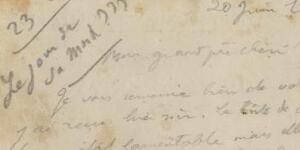 23
20 juin 1
Le jour de
sa mort ???
Mon grand père chéri
Je vous remercie bien de vo
j'ai reçue hier soir. Le
lamentable mais